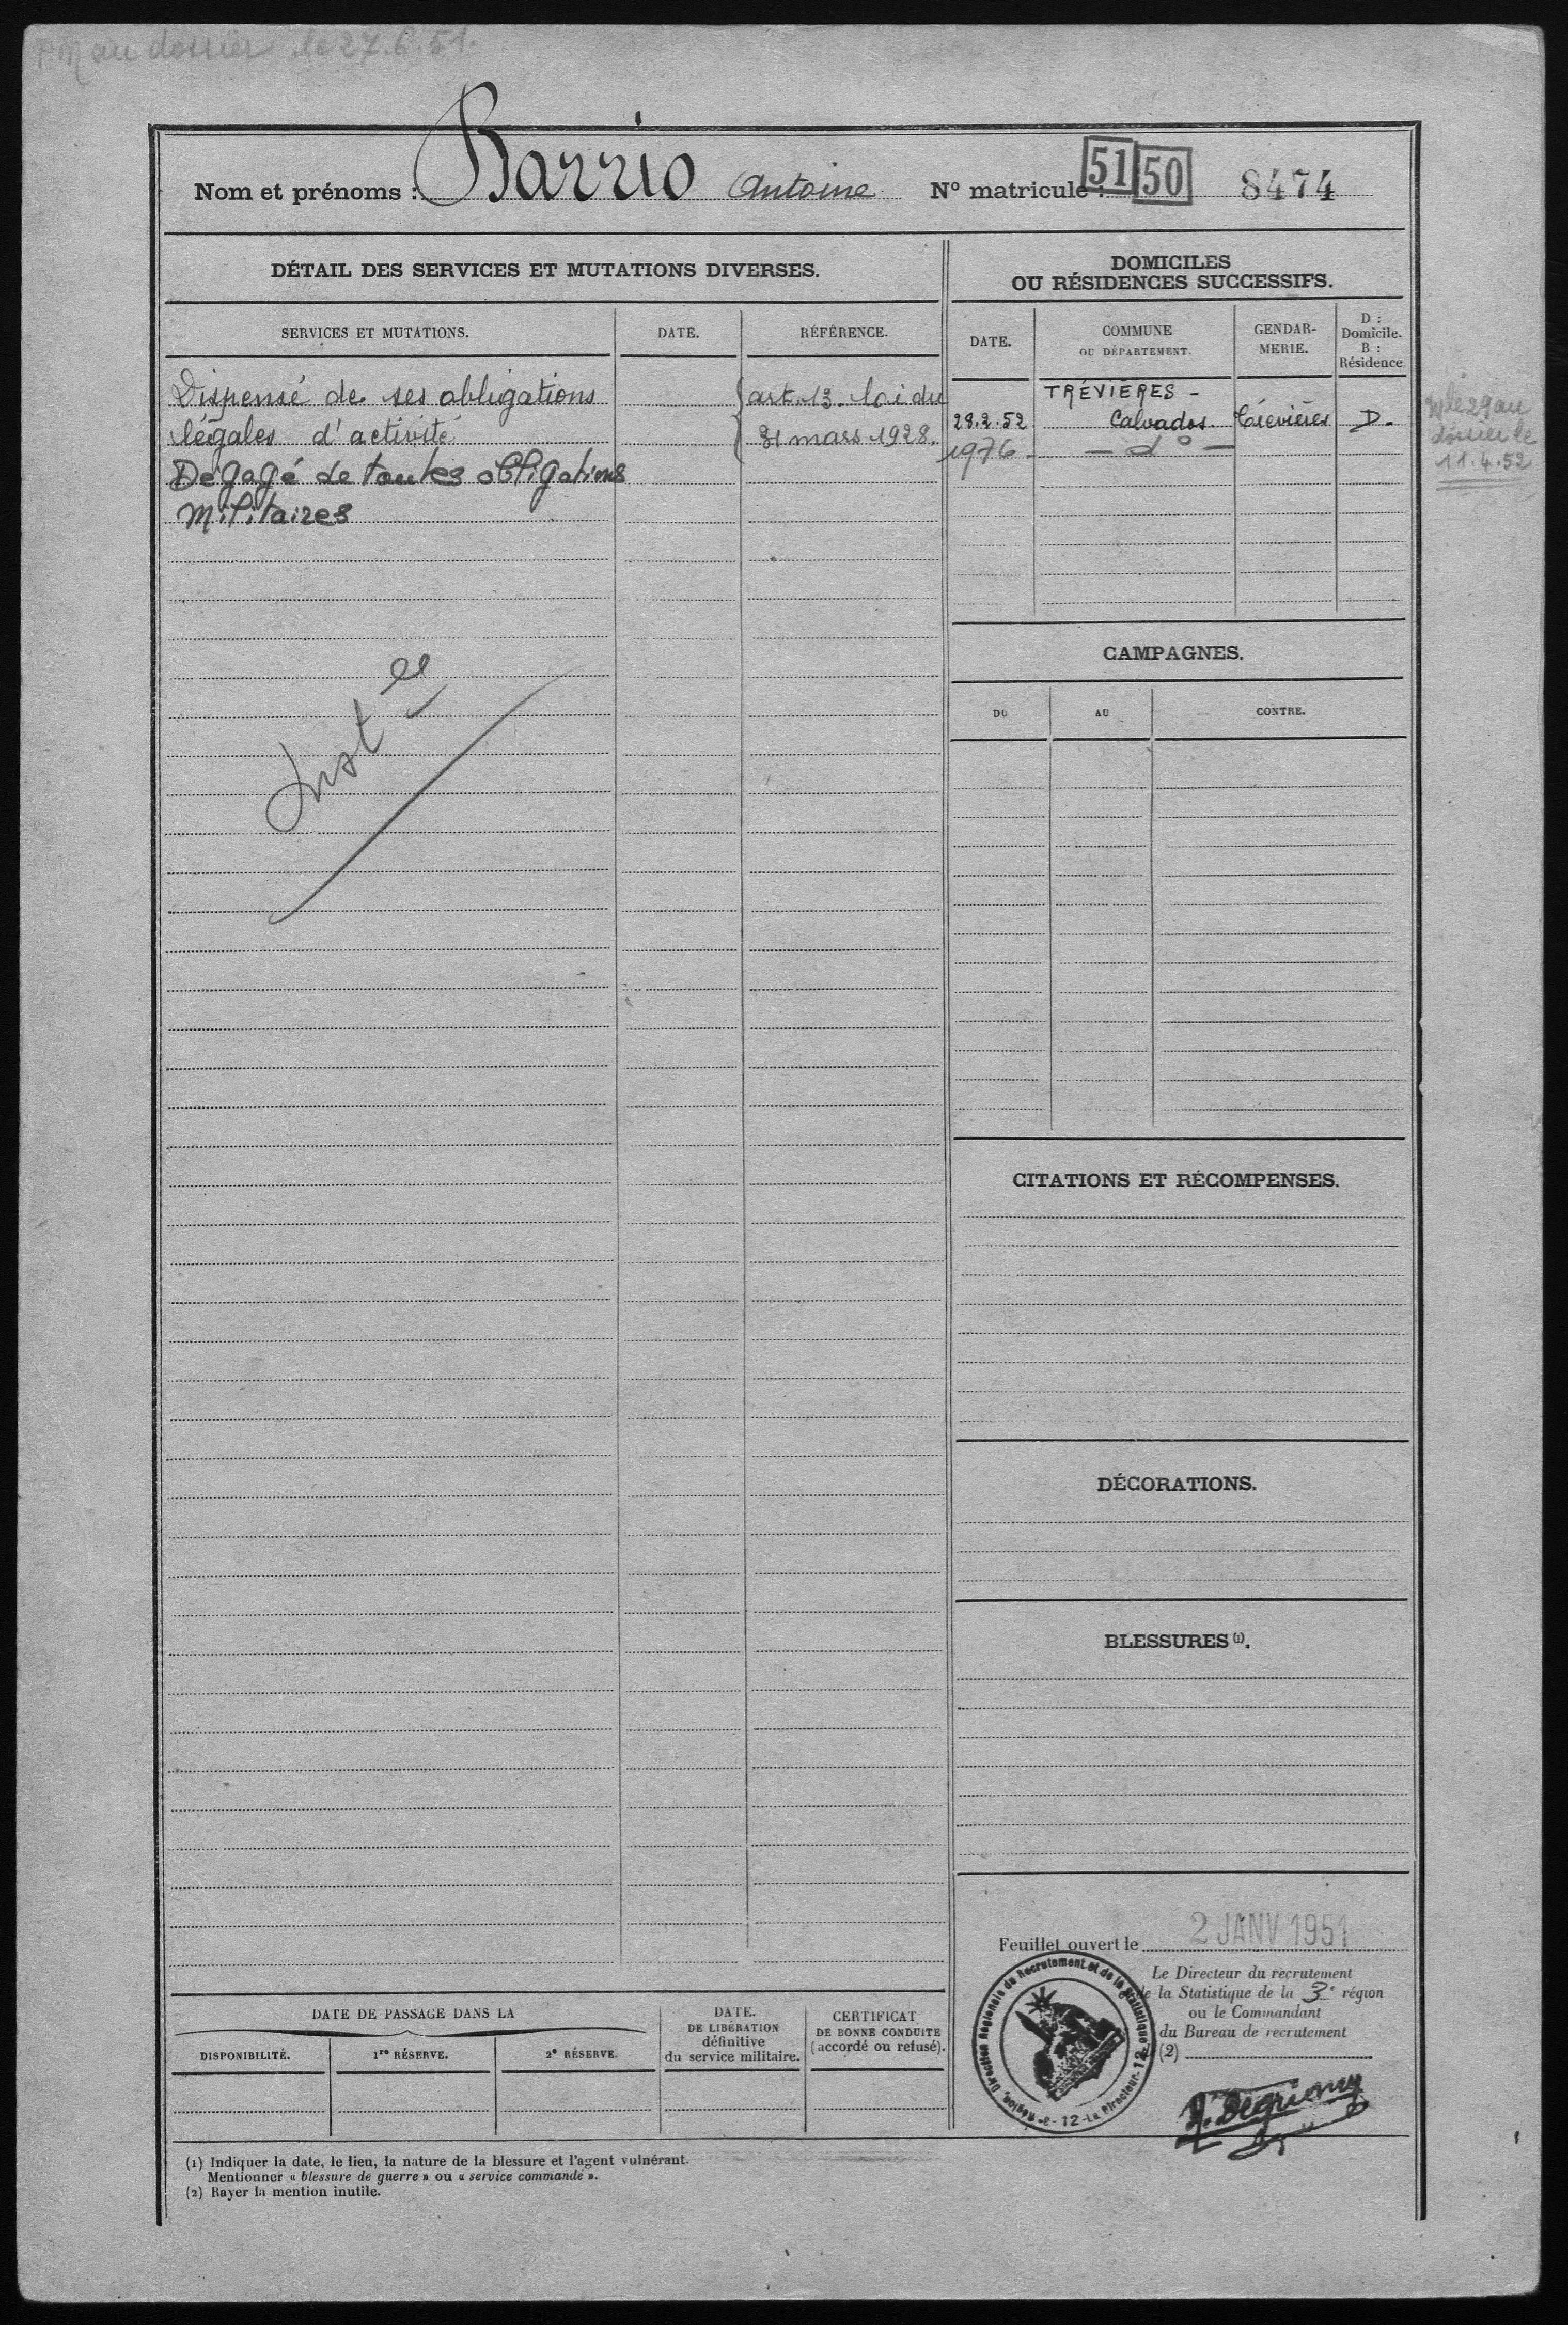 PM au dossier le 27.6.51.
Nom et prénoms : Barrio Antoine N° matricule : 51 50 8474
DÉTAIL DES SERVICES ET MUTATIONS DIVERSES.
SERVICES ET MUTATIONS. DATE. RÉFÉRENCE.
Dispensé de ses obligations art. 13 loi du
légales d'activité 31 mars 1928.
Dégagé de toutes obligations
Militaires
DOMICILES
OU RÉSIDENCES SUCCESSIFS.
DATE. COMMUNE
OU DÉPARTEMENT. GENDAR-
MERIE. D :
Domicile.
B :
Résidence
TRÉVIÈRES -
29.2.52 Calvados. Trévières D.
1976 - - d° -
au
dossier le
11.4.52
CAMPAGNES.
DU AU CONTRE.
CITATIONS ET RÉCOMPENSES.
DÉCORATIONS.
BLESSURES (1).
Feuillet ouvert le 2 JANV 1951
Le Directeur du recrutement
de la Statistique de la 3e région
ou le Commandant
du Bureau de recrutement
(2)
Direction Régionale du Recrutement et de la Statistique de la 3e Région - Le Directeur - 12
DATE DE PASSAGE DANS LA
DISPONIBILITÉ. 1re RÉSERVE. 2e RÉSERVE.
DATE.
DE LIBÉRATION
définitive
du service militaire.
CERTIFICAT
DE BONNE CONDUITE
(accordé ou refusé).
(1) Indiquer la date, le lieu, la nature de la blessure et l'agent vulnérant.
Mentionner « blessure de guerre » ou « service commandé ».
(2) Rayer la mention inutile.